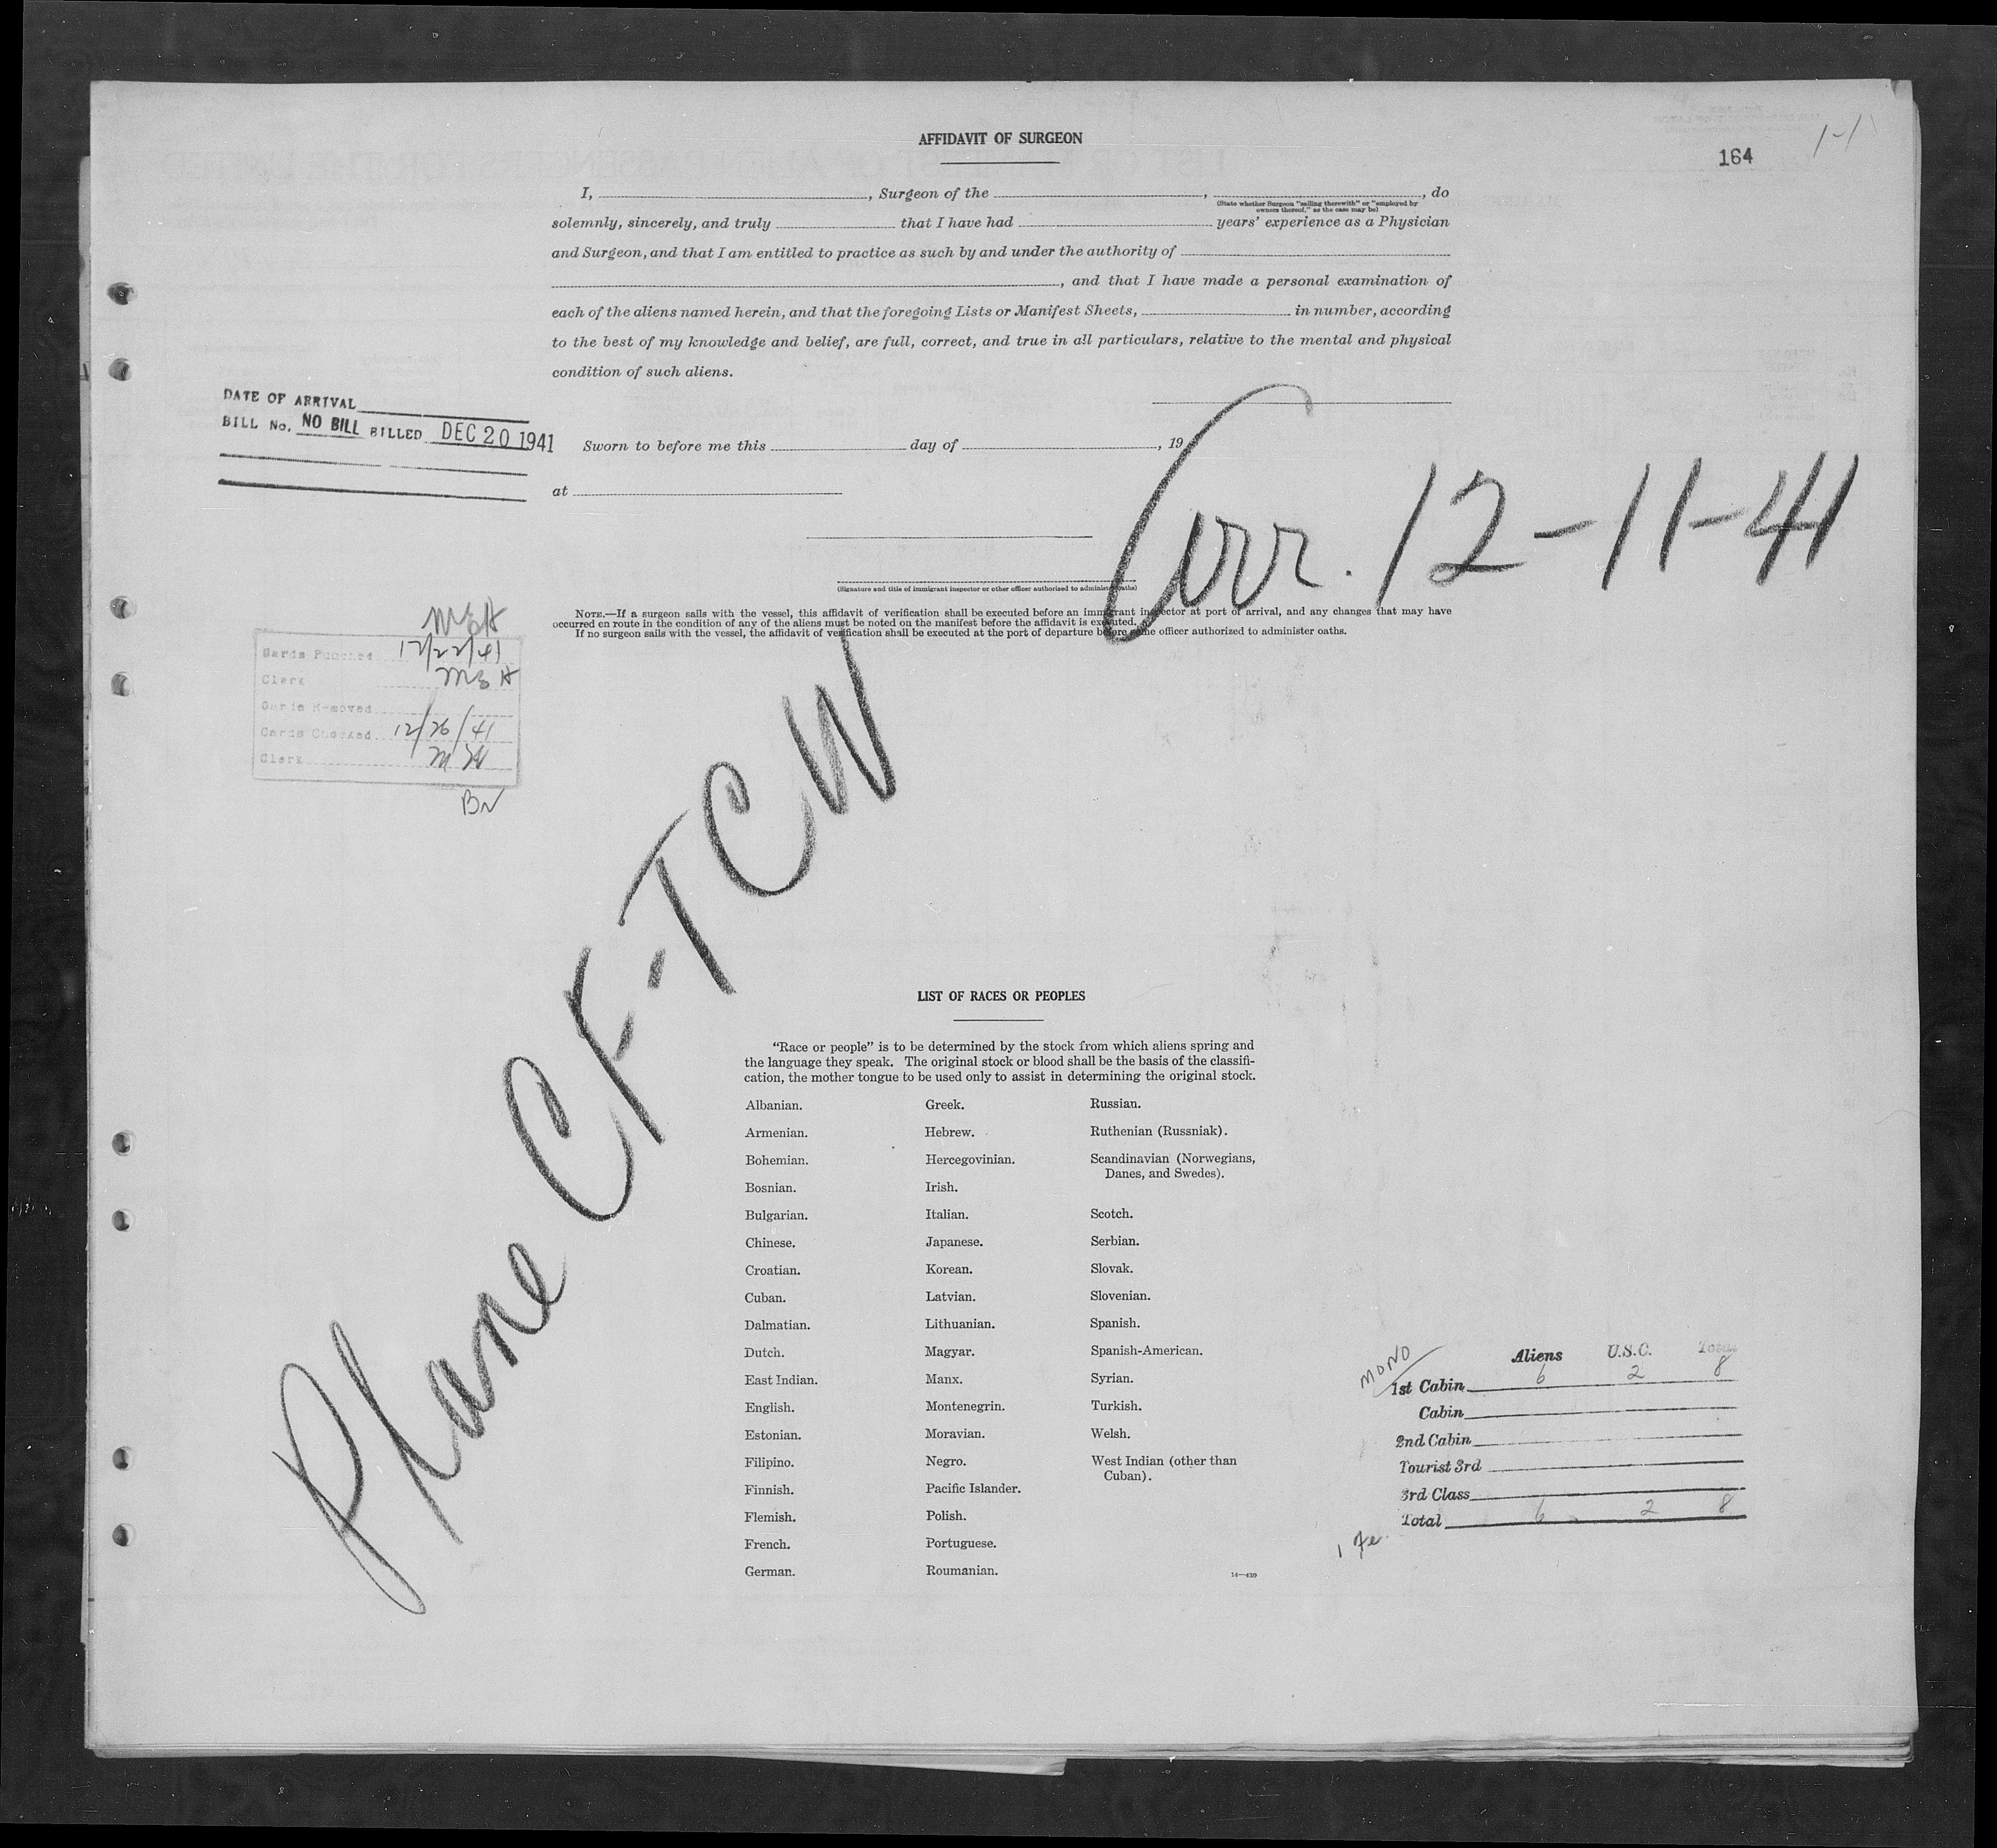 AFFIDAVIT OF SURGEON
164
1-1
I, , Surgeon of the , , do
(State whether Surgeon "sailing therewith" or "employed by
owners thereof," as the case may be)
solemnly, sincerely, and truly that I have had years' experience as a Physician
and Surgeon, and that I am entitled to practice as such by and under the authority of
, and that I have made a personal examination of
each of the aliens named herein, and that the foregoing Lists or Manifest Sheets, in number, according
to the best of my knowledge and belief, are full, correct, and true in all particulars, relative to the mental and physical
condition of such aliens.
DATE OF ARRIVAL
BILL No. NO BILL BILLED DEC 20 1941
Sworn to before me this day of , 19
at
Arr. 12-11-41
(Signature and title of immigrant inspector or other officer authorized to administer oaths)
NOTE.—If a surgeon sails with the vessel, this affidavit of verification shall be executed before an immigrant inspector at port of arrival, and any changes that may have
occurred en route in the condition of any of the aliens must be noted on the manifest before the affidavit is executed.
If no surgeon sails with the vessel, the affidavit of verification shall be executed at the port of departure before some officer authorized to administer oaths.
Cards Punched 12/22/41
Clerk
Cards Removed
Cards Checked 12/26/41
Clerk
Plane CF-TCW
LIST OF RACES OR PEOPLES
"Race or people" is to be determined by the stock from which aliens spring and
the language they speak. The original stock or blood shall be the basis of the classifi-
cation, the mother tongue to be used only to assist in determining the original stock.
Albanian.
Armenian.
Bohemian.
Bosnian.
Bulgarian.
Chinese.
Croatian.
Cuban.
Dalmatian.
Dutch.
East Indian.
English.
Estonian.
Filipino.
Finnish.
Flemish.
French.
German.
Greek.
Hebrew.
Hercegovinian.
Irish.
Italian.
Japanese.
Korean.
Latvian.
Lithuanian.
Magyar.
Manx.
Montenegrin.
Moravian.
Negro.
Pacific Islander.
Polish.
Portuguese.
Roumanian.
Russian.
Ruthenian (Russniak).
Scandinavian (Norwegians,
Danes, and Swedes).
Scotch.
Serbian.
Slovak.
Slovenian.
Spanish.
Spanish-American.
Syrian.
Turkish.
Welsh.
West Indian (other than
Cuban).
14—430
MONO
Aliens U.S.C. Total
1st Cabin 6 2 8
Cabin
2nd Cabin
Tourist 3rd
3rd Class
Total 6 2 8